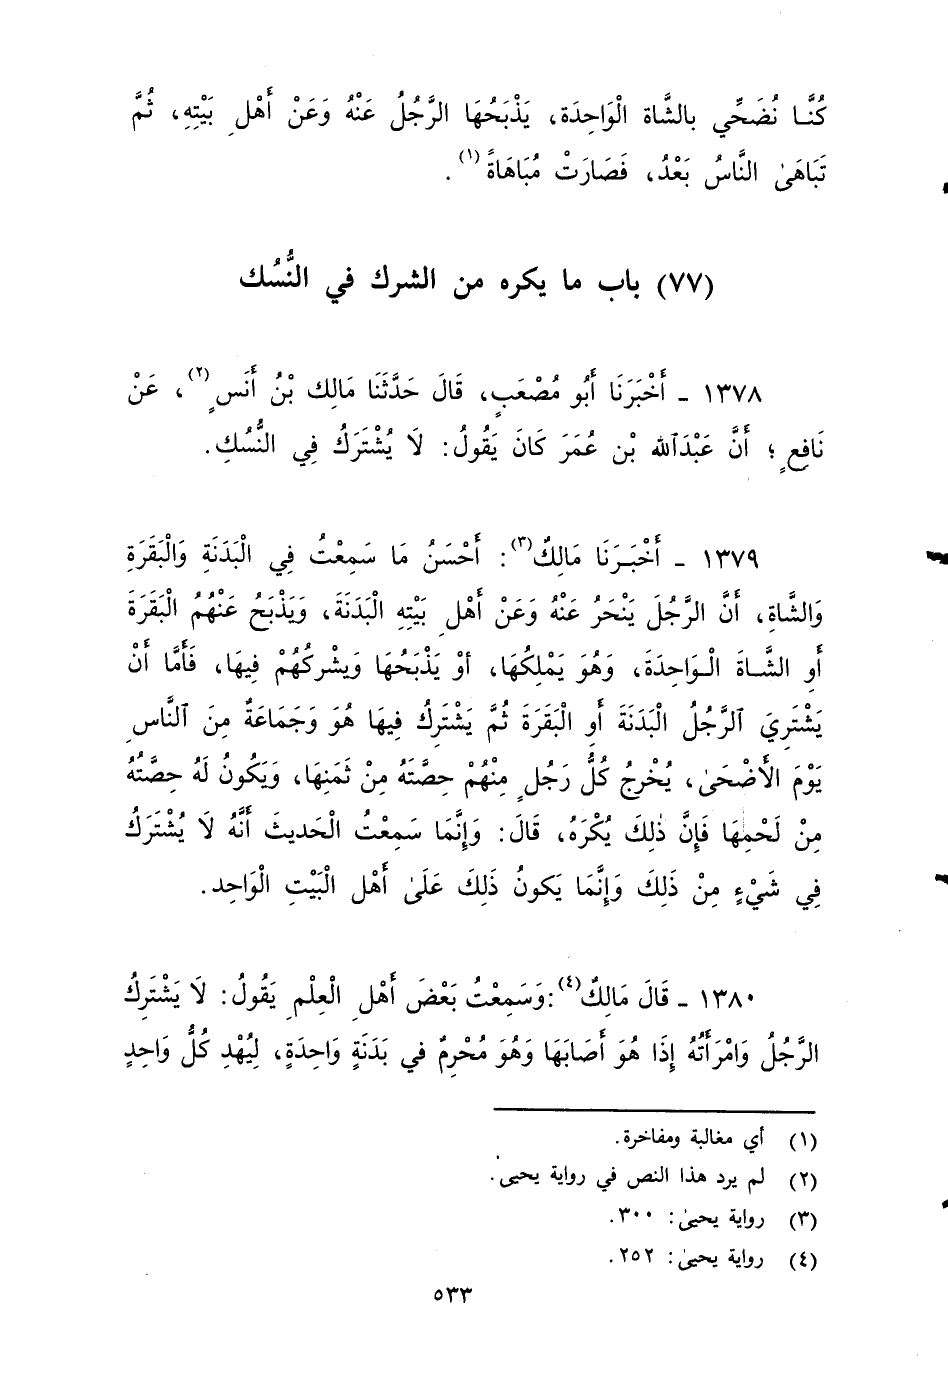 كُنَّا نُضَحِّي بالشَّاة الْوَاحِدَة، يَذْبَحُهَا الرَّجُلُ عَنْهُ وَعَنْ أَهْلِ بَيْتِهِ، ثُمَّ
تَبَاهَىٰ النَّاسُ بَعْدُ، فَصَارَتْ مُبَاهَاةً (١) .
(٧٧) باب ما يكره من الشرك في النُّسُك
١٣٧٨ ـ أَخْبَرَنَا أَبُو مُصْعَبٍ، قَالَ حَدَّثَنَا مَالِك بْنُ أَنَسٍ (٢)، عَنْ
نَافِعٍ ؛ أَنَّ عَبْدَاللّه بْن عُمَرَ كَانَ يَقُولُ: لَا يُشْتَرَكُ فِي النُّسُكِ.
١٣٧٩ ـ أَخْبَرَنَا مَالِكٌ(٣): أَحْسَنُ مَا سَمِعْتُ فِي الْبَدَنَةِ وَالْبَقَرَةِ
وَالشَّاةِ، أَنَّ الرَّجُلَ يَنْحَرُ عَنْهُ وَعَنْ أَهْلِ بَيْتِهِ الْبَدَنَةَ، وَيَذْبَحُ عَنْهُمُ الْبَقَرَةَ
أَو الشَّاةَ الْوَاحِدَةَ، وَهُوَ يَمْلِكُهَا، أوْ يَذْبَحُهَا وَيشْركُهُمْ فِيهَا، فَأَمَّا أَنْ
يَشْتَرِيَ ٱلرَّجُلُ الْبَدَنَةَ أَوِ الْبَقَرَةَ ثُمَّ يَشْتَرِكُ فِيهَا هُوَ وَجَمَاعَةٌ مِنَ ٱلنَّاسِ
يَوْمَ الأَضْحَىٰ، يُخْرِجُ كُلُّ رَجُلٍ مِنْهُمْ حِصَّتَهُ مِنْ ثَمَنِهَا، وَيَكُونُ لَهُ حِصَّتُهُ
مِنْ لَحْمِهَا فَإِنَّ ذٰلِكَ يُكْرَهُ، قَالَ: وَإِنَّمَا سَمِعْتُ الْحَديثَ أَنَّهُ لَا يُشْتَرَكُ
فِي شَيْءٍ مِنْ ذَلِكَ وَإِنَّمَا يَكونُ ذَلِكَ عَلَىٰ أَهْل الْبَيْتِ الْوَاحِد.
١٣٨٠ ـ قَالَ مَالِكٌ(٤): وَسَمِعْتُ بَعْضَ أَهْلِ الْعِلْمِ يَقُولُ: لَا يَشْتَرِكُ
الرَّجُلُ وَامْرَأَتُهُ إِذَا هُوَ أَصَابَهَا وَهُوَ مُحْرِمٌ في بَدَنَةٍ وَاحِدَةٍ، لِيُهْدِ كُلُّ وَاحِدٍ
(١) أي مغالبة ومفاخرة.
(٢) لم يرد هذا النص في رواية يحيى.
(٣) رواية يحيىٰ: ٣٠٠.
(٤) رواية يحيىٰ: ٢٥٢.
٥٣٣